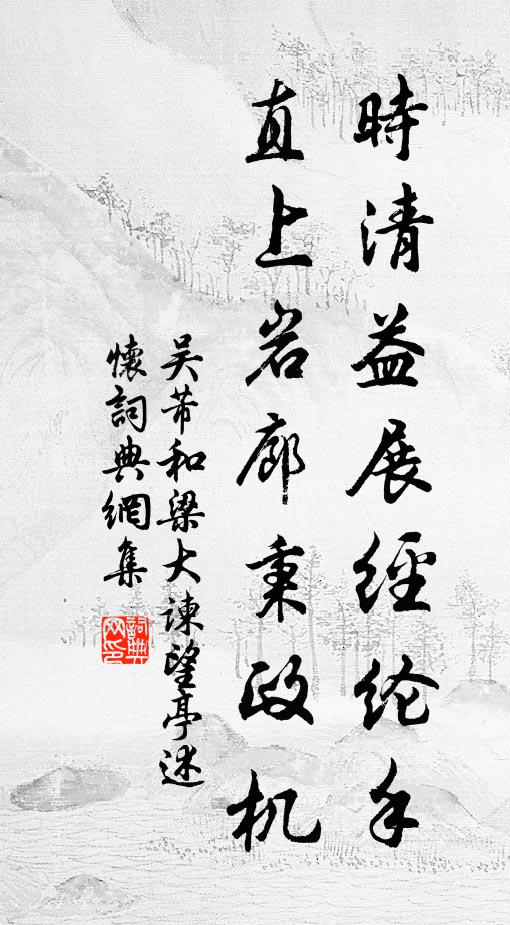 時清益展經纶手
直上岩廊秉政机
吴芾和梁大諫望亭述
懷詞典網集
詞典网印